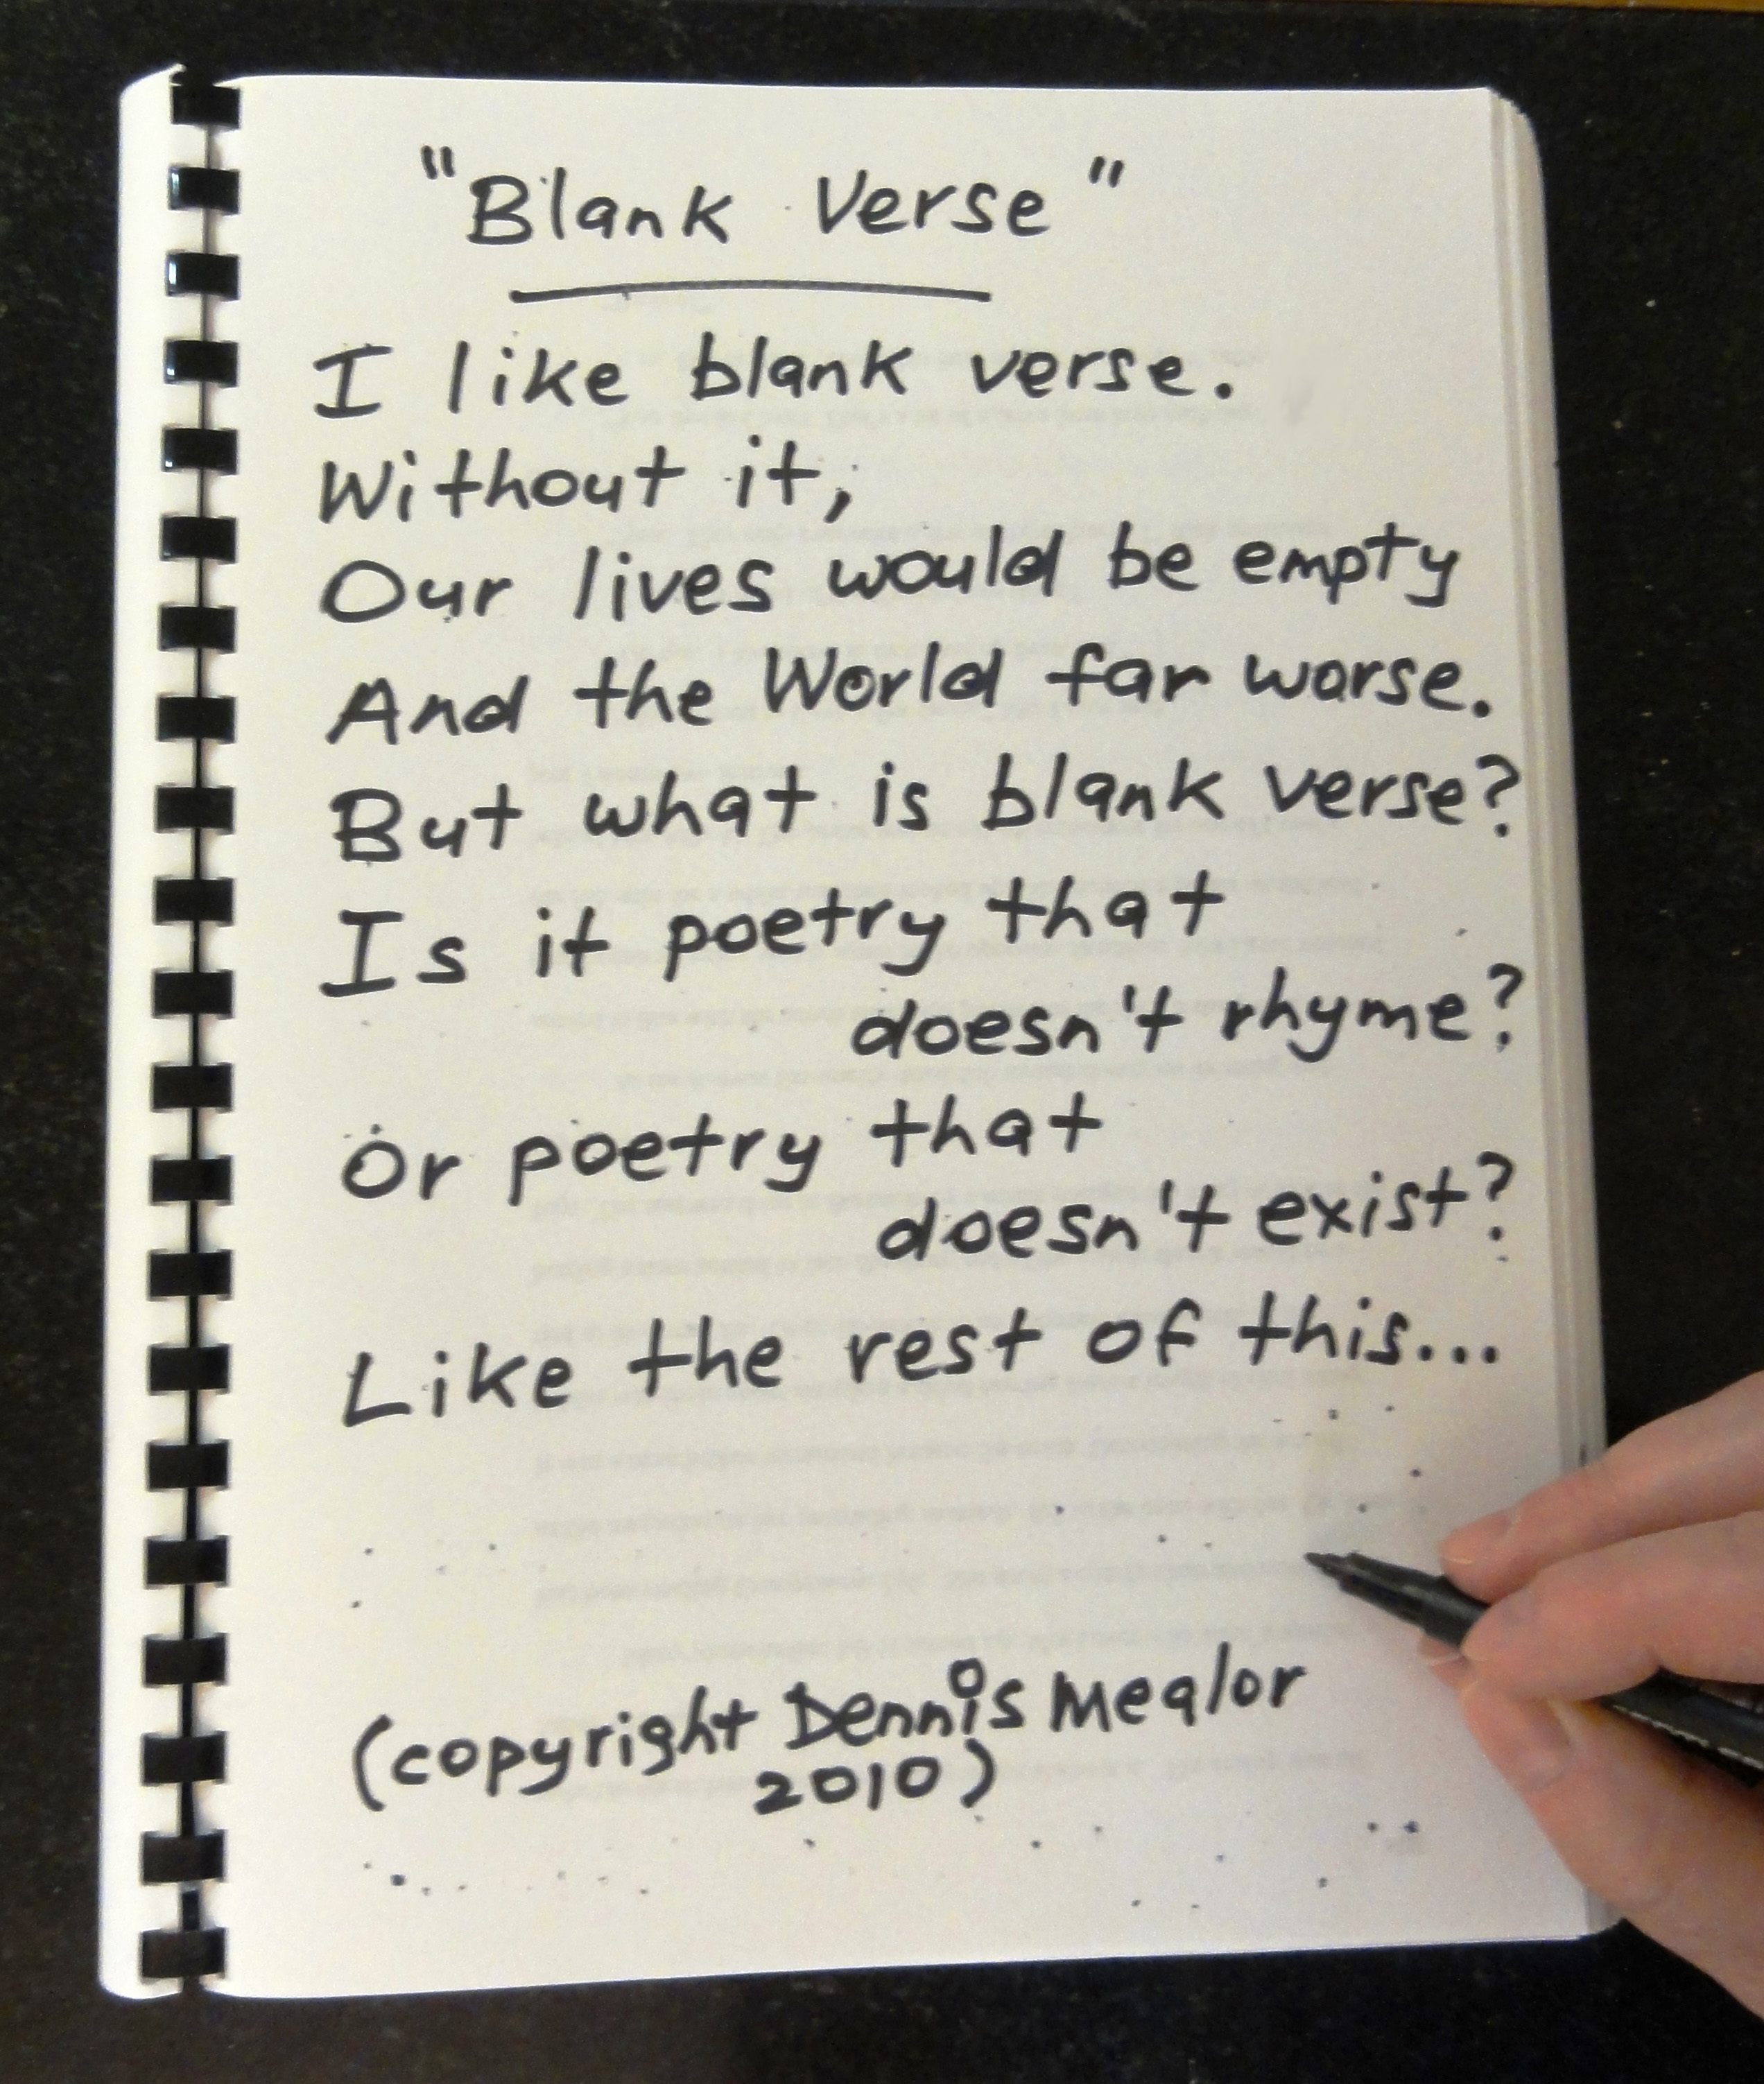 "Blank Verse"
I like blank verse.
Without it,
Our lives would be empty
And the World far worse.
But what is blank verse?
Is it poetry that
doesn't rhyme?
Or poetry that
doesn't exist?
Like the rest of this...
(copyright Dennis Mealor
2010)